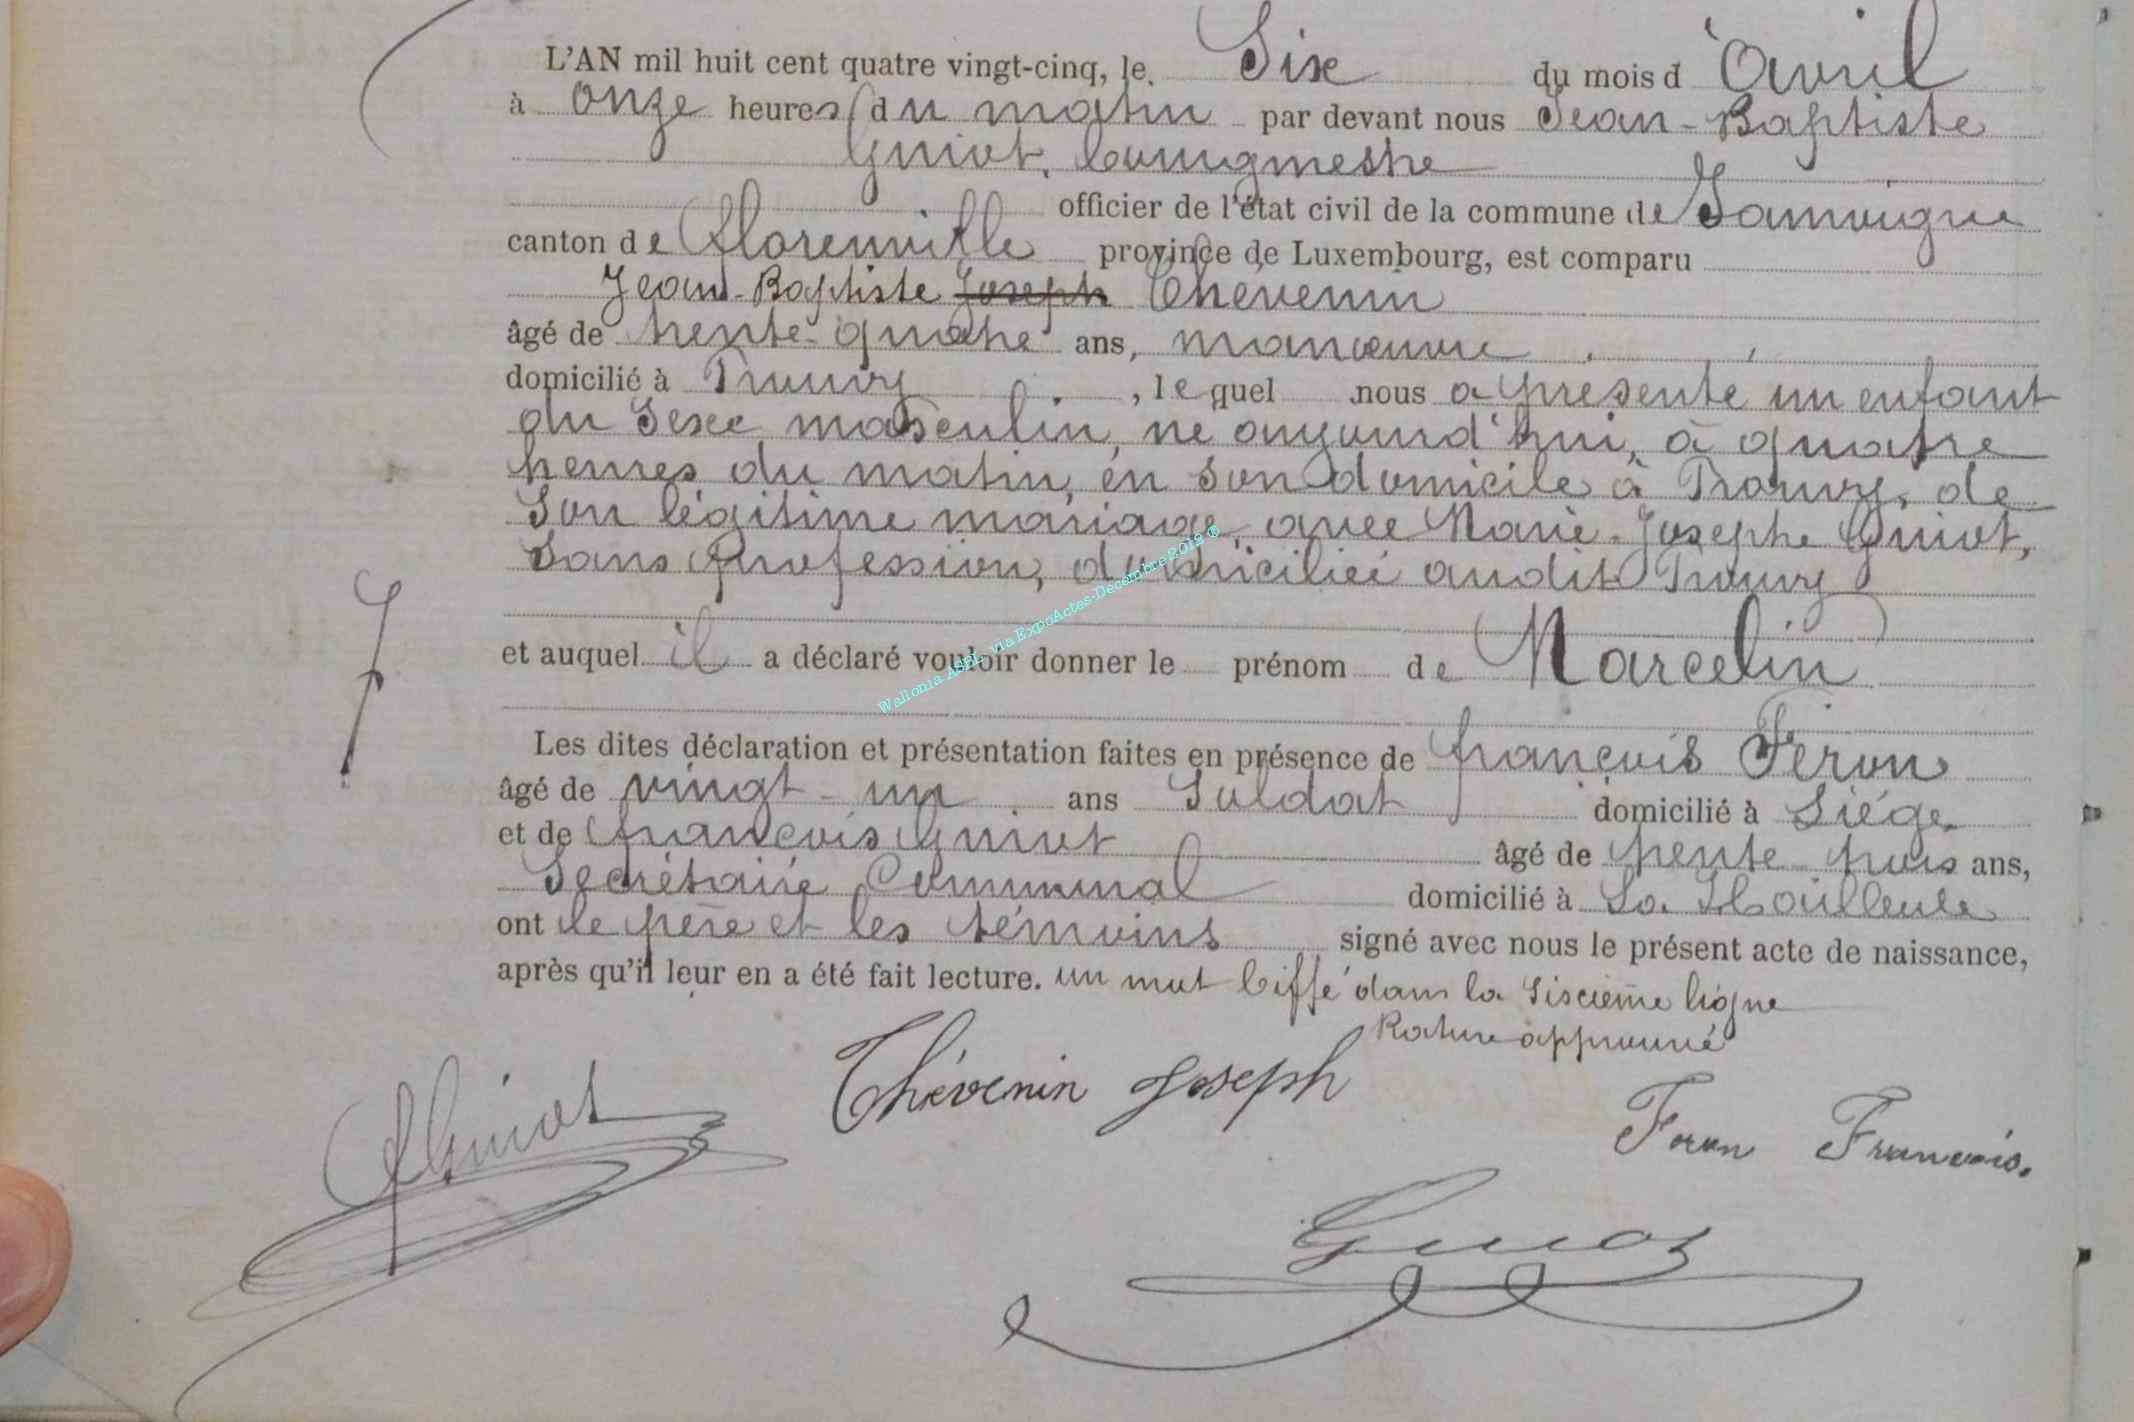 L'AN mil huit cent quatre vingt-cinq, le Six du mois d'Avril
à onze heures du matin par devant nous Jean-Baptiste
Guiot, bourgmestre
officier de l'état civil de la commune de Jamoigne
canton de Florenville province de Luxembourg, est comparu
Jean-Baptiste Joseph Thevenin
âgé de trente-quatre ans, manœuvre
domicilié à Prouvy, lequel nous a présenté un enfant
du Sexe masculin, né aujourd'hui, à quatre
heures du matin, en son domicile à Prouvy, de
Son légitime mariage, avec Marie-Josephe Guiot,
Sans profession, domiciliée audit Prouvy
et auquel il a déclaré vouloir donner le prénom de Marcelin
Les dites déclaration et présentation faites en présence de françois Feron
âgé de vingt-un ans Soldat domicilié à Liége
et de françois Guiot âgé de trente trois ans,
Secrétaire Communal domicilié à La
ont le père et les témoins signé avec nous le présent acte de naissance,
après qu'il leur en a été fait lecture. un mot biffé dans la Sixième ligne
Rature approuvé
Thévenin Joseph
Guiot
Feron François.
Guiot
Wallonia ASBL via ExpoActes-Decembre 2019 ®